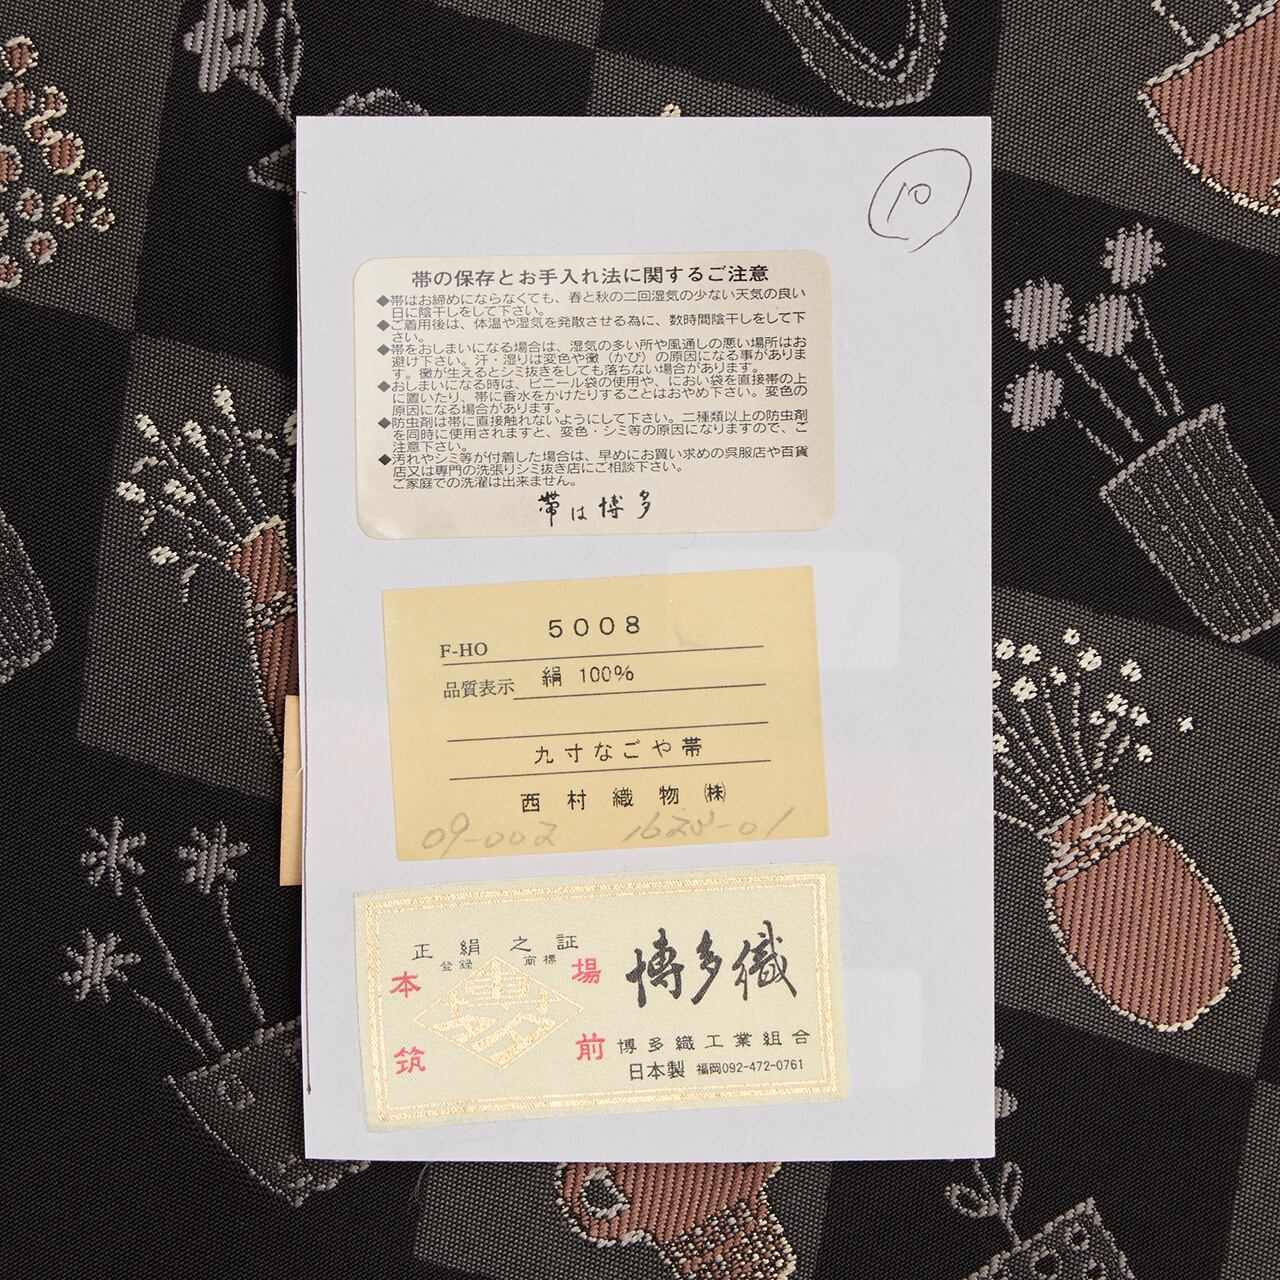 10
帯の保存とお手入れ法に関するご注意
◆帯はお締めにならなくても、春と秋の二回湿気の少ない天気の良い
日に陰干しをして下さい。
◆ご着用後は、体温や湿気を発散させる為に、数時間陰干しをして下
さい。
◆帯をおしまいになる場合は、湿気の多い所や風通しの悪い場所はお
避け下さい。汗・湿りは変色や黴（かび）の原因になる事がありま
す。黴が生えるとシミ抜きをしても落ちない場合があります。
◆おしまいになる時は、ビニール袋の使用や、におい袋を直接帯の上
に置いたり、帯に香水をかけたりすることはおやめ下さい。変色の
原因になる場合があります。
◆防虫剤は帯に直接触れないようにして下さい。二種類以上の防虫剤
を同時に使用されますと、変色・シミ等の原因になりますので、ご
注意下さい。
◆汚れやシミ等が付着した場合は、早めにお買い求めの呉服店や百貨
店又は専門の洗張りシミ抜き店にご相談下さい。
ご家庭での洗濯は出来ません。
帯は博多
F-HO 5008
品質表示 絹 100%
九寸なごや帯
西村織物㈱
09-002 1628-01
正絹之証
登録 商標
本場
筑前
博多
博多織
博多織工業組合
日本製 福岡092-472-0761